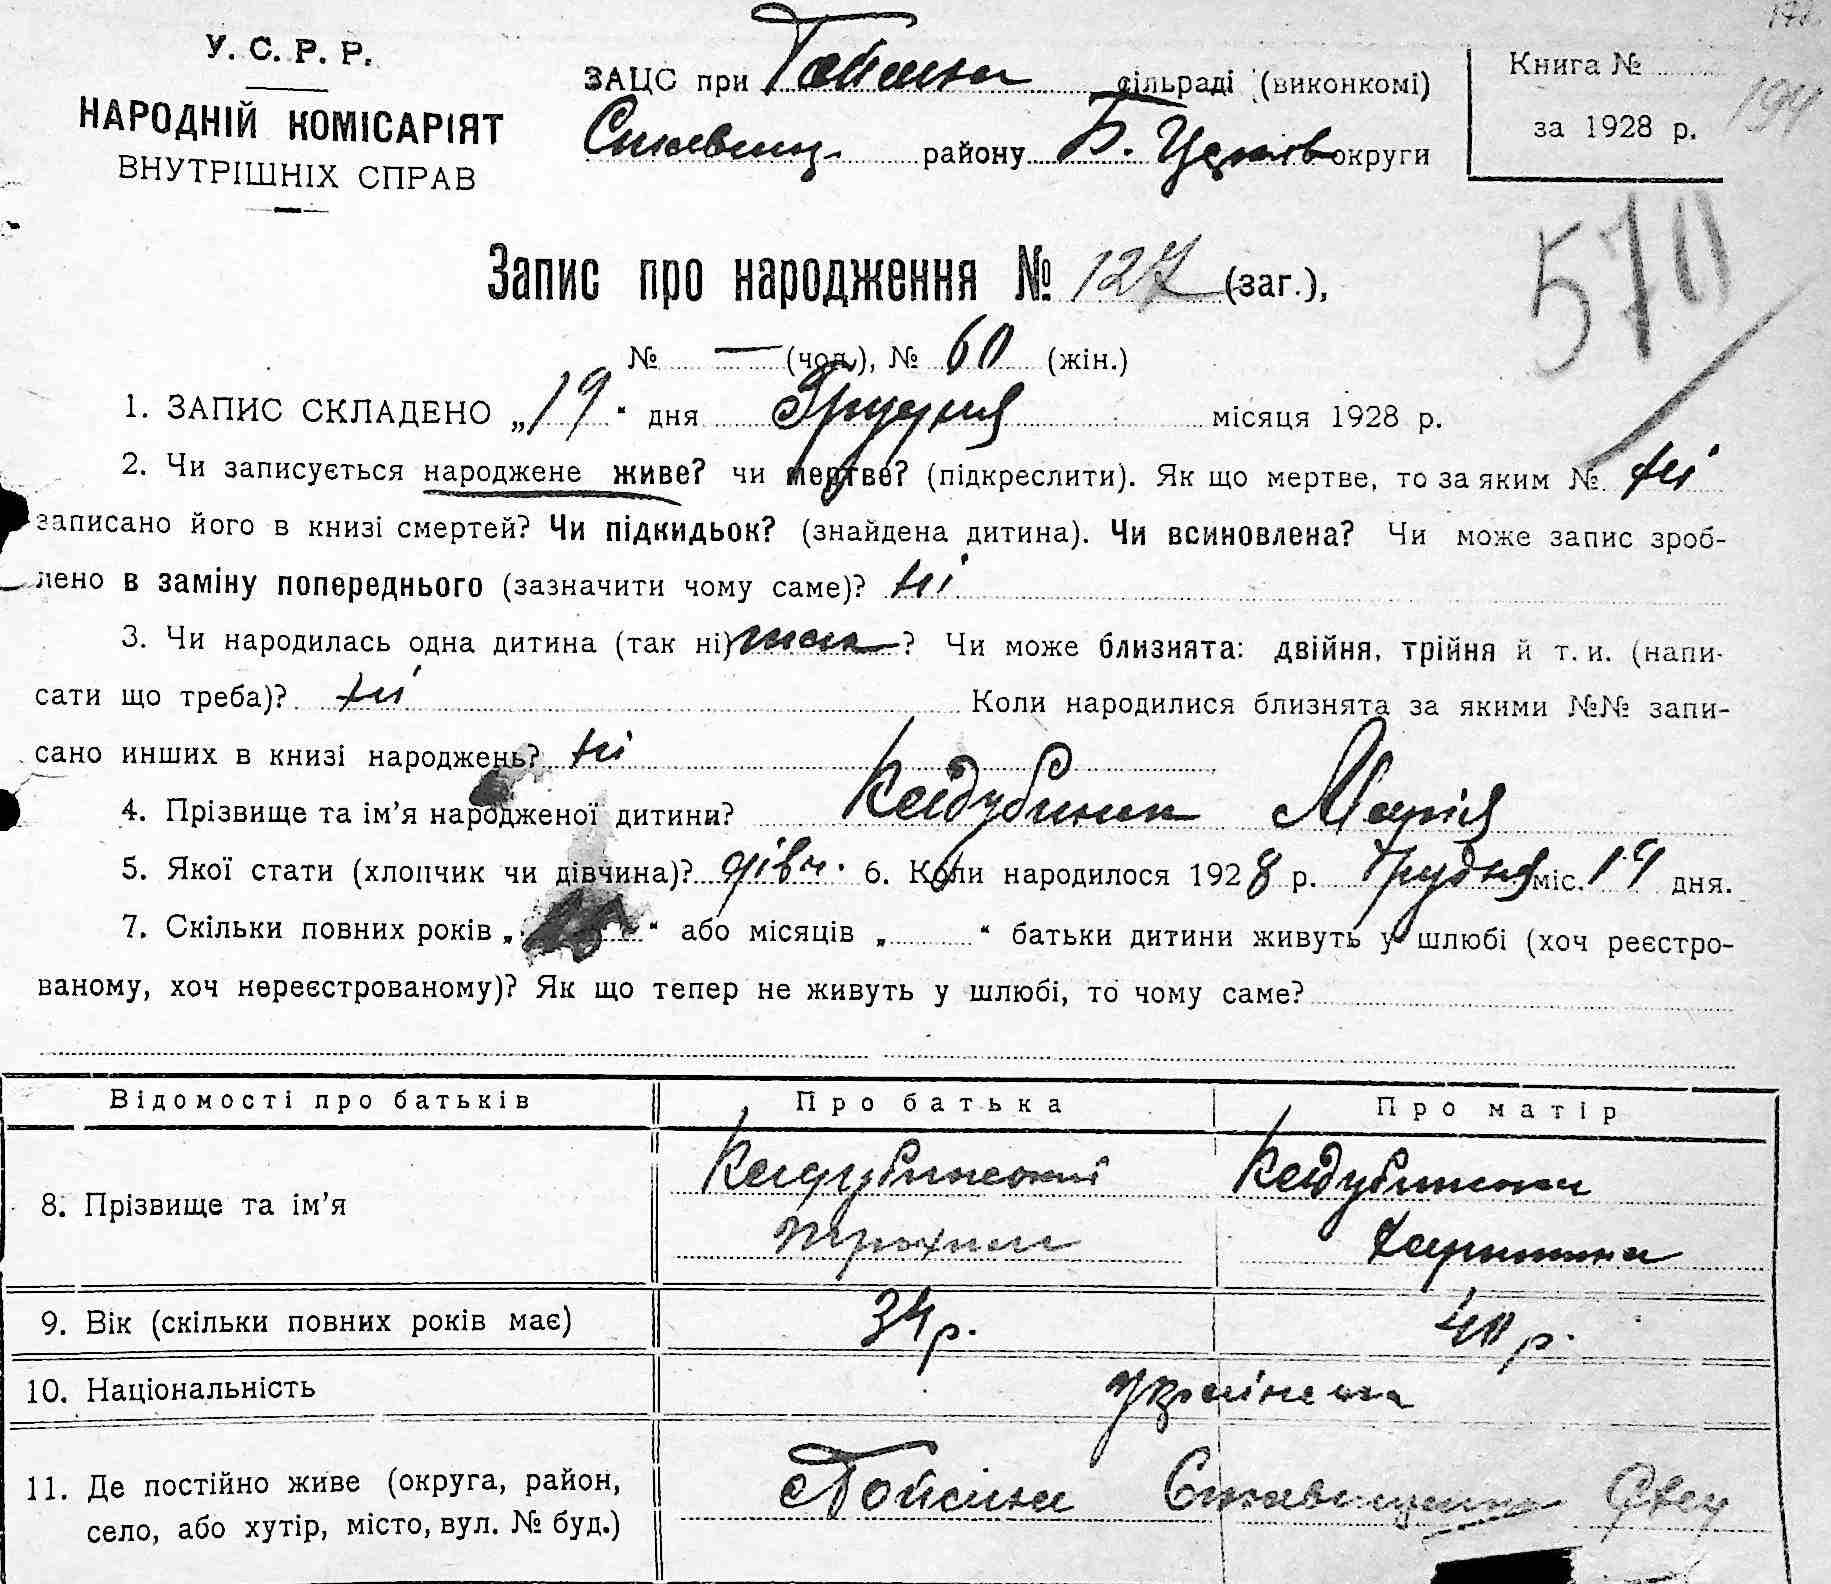 У. С. Р. Р.
НАРОДНІЙ КОМІСАРІЯТ
ВНУТРІШНІХ СПРАВ
ЗАЦС при сільраді (виконкомі)
району Б. Церків округи
Книга №
за 1928 р.
194
570
Запис про народження № 127 (заг.),
№ — (чол.), № 60 (жін.)
1. ЗАПИС СКЛАДЕНО „19“ дня Грудня місяця 1928 р.
2. Чи записується народжене живе? чи мертве? (підкреслити). Як що мертве, то за яким № ні
записано його в книзі смертей? Чи підкидьок? (знайдена дитина). Чи всиновлена? Чи може запис зроб-
лено в заміну попереднього (зазначити чому саме)? ні
3. Чи народилась одна дитина (так ні) так? Чи може близнята: двійня, трійня й т. и. (напи-
сати що треба)? ні Коли народилися близнята за якими №№ запи-
сано инших в книзі народжень? ні
4. Прізвище та ім’я народженої дитини? Марія
5. Якої стати (хлопчик чи дівчина)? дівч. 6. Коли народилося 1928 р. Грудня міс. 19 дня.
7. Скільки повних років „ “ або місяців „ “ батьки дитини живуть у шлюбі (хоч реєстро-
ваному, хоч нереєстрованому)? Як що тепер не живуть у шлюбі, то чому саме?
Відомості про батьків Про батька Про матір
8. Прізвище та ім’я
Трохим
9. Вік (скільки повних років має) 34 р. 40 р.
10. Національність Українська
11. Де постійно живе (округа, район,
село, або хутір, місто, вул. № буд.)